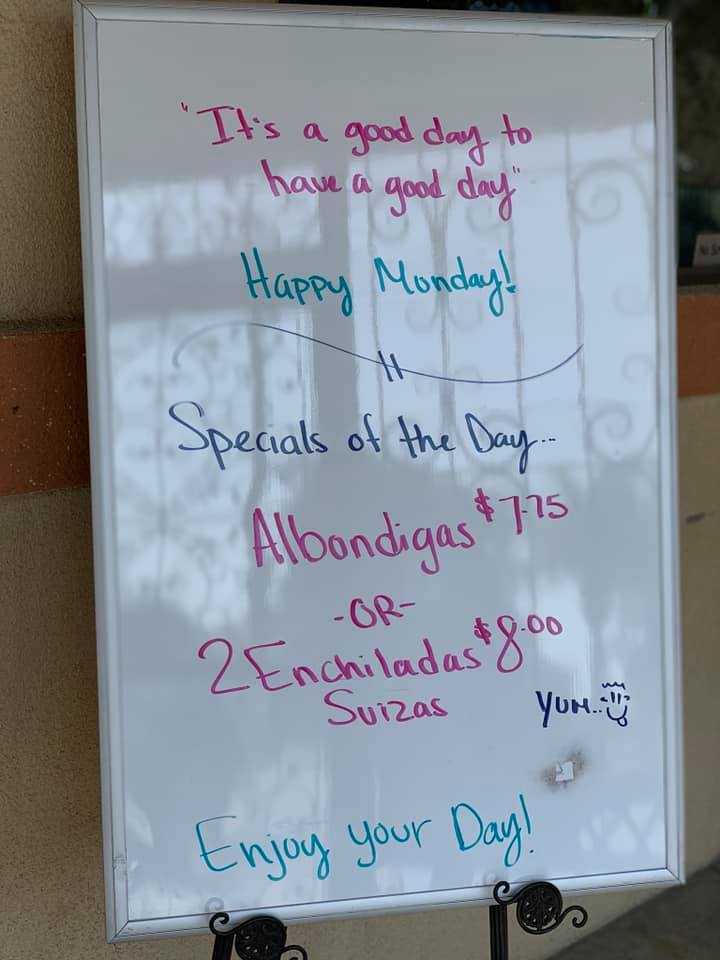 "It's a good day to
have a good day"
Happy Monday!
Specials of the Day...
Albondigas $7.75
-OR-
2 Enchiladas $8.00
Suizas
YUM..
Enjoy your Day!